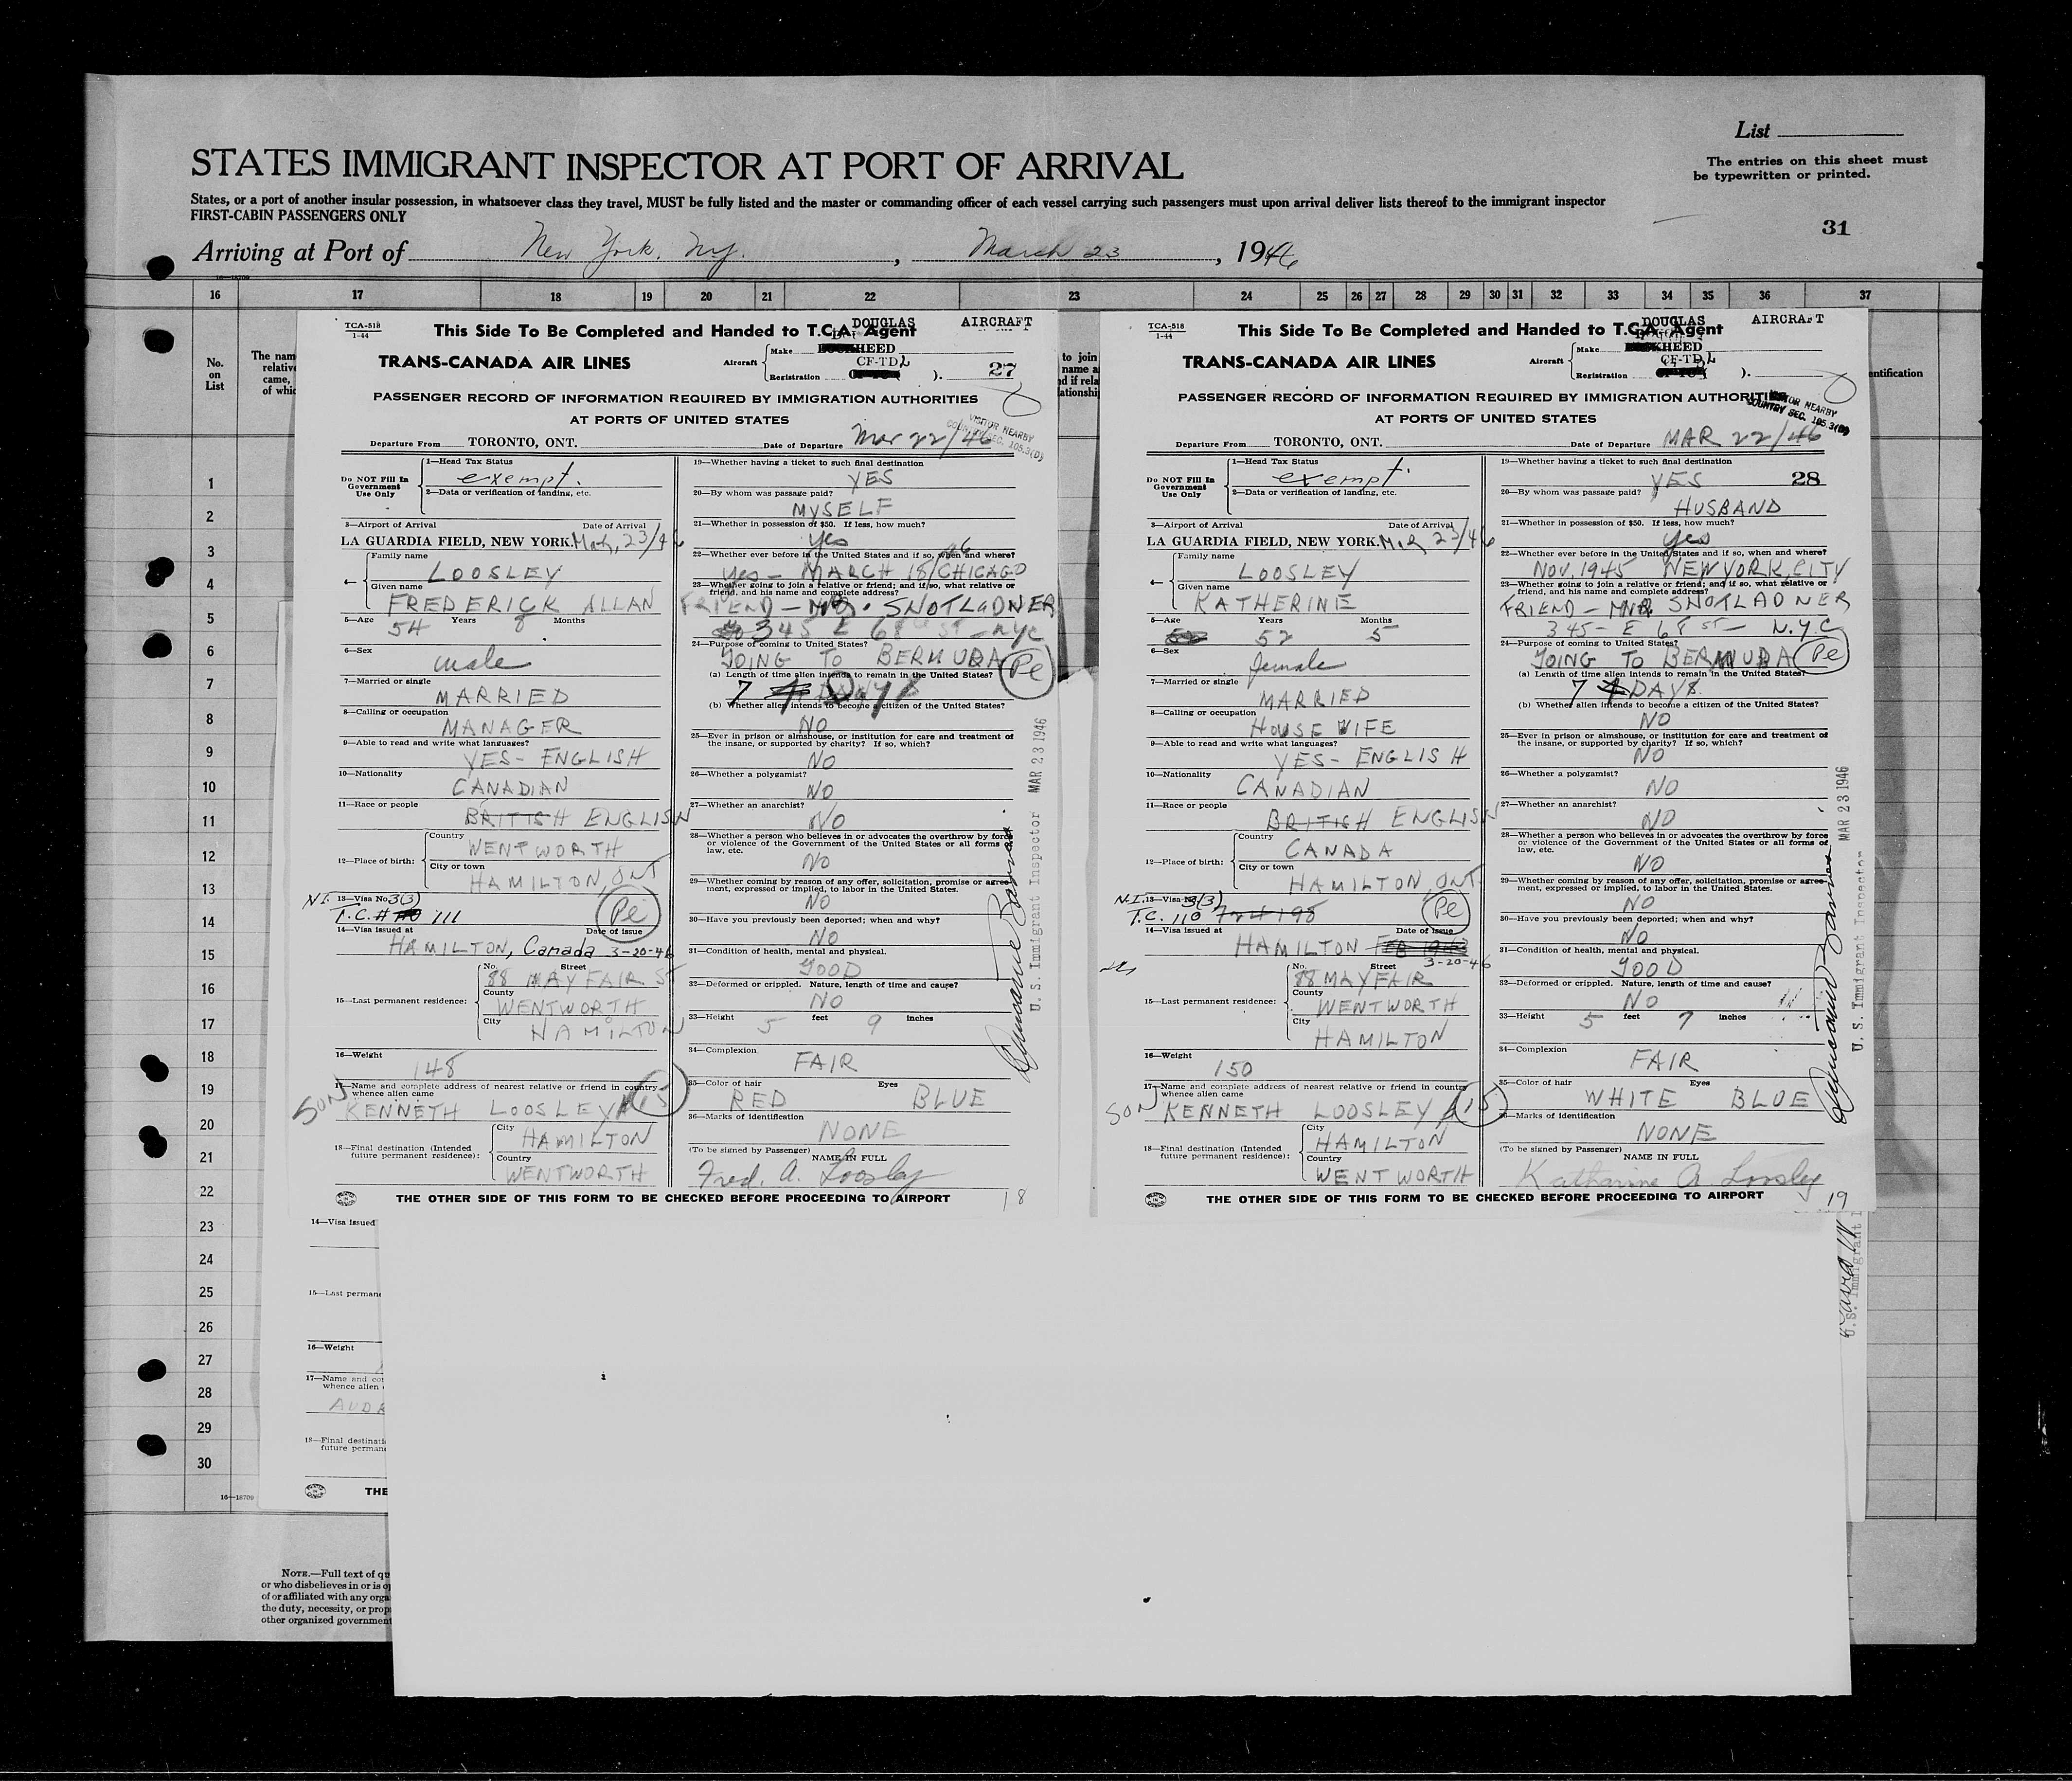 List
STATES IMMIGRANT INSPECTOR AT PORT OF ARRIVAL
The entries on this sheet must
be typewritten or printed.
States, or a port of another insular possession, in whatsoever class they travel, MUST be fully listed and the master or commanding officer of each vessel carrying such passengers must upon arrival deliver lists thereof to the immigrant inspector
FIRST-CABIN PASSENGERS ONLY
31
Arriving at Port of New York, N.Y., March 23, 1946
16—18709
16 17 18 19 20 21 22 23 24 25 26 27 28 29 30 31 32 33 34 35 36 37
No.
on
List
The nam
relative
came,
of whic
to join
name a
d if rela
ationshi
entification
1
2
3
4
5
6
7
8
9
10
11
12
13
14
15
16
17
18
19
20
21
22
23
24
25
26
27
28
29
30
TCA-518
1-44
This Side To Be Completed and Handed to T.C.A. Agent
DOUGLAS AIRCRAFT
TRANS-CANADA AIR LINES
Aircraft
Make HEED
CF-TDL
Registration ). 27
PASSENGER RECORD OF INFORMATION REQUIRED BY IMMIGRATION AUTHORITIES
AT PORTS OF UNITED STATES
VISITOR NEARBY
COUNTRY SEC. 105.3(D)
Departure From TORONTO, ONT. Date of Departure Mar 22/46
Do NOT Fill In
Government
Use Only
1—Head Tax Status
exempt.
2—Data or verification of landing, etc.
3—Airport of Arrival Date of Arrival
LA GUARDIA FIELD, NEW YORK. Mar, 23/46
4— Family name
LOOSLEY
Given name
FREDERICK ALLAN
5—Age 54 Years 8 Months
6—Sex
male
7—Married or single
MARRIED
8—Calling or occupation
MANAGER
9—Able to read and write what languages?
YES- ENGLISH
10—Nationality
CANADIAN
11—Race or people
BRITISH ENGLISH
12—Place of birth:
Country
WENTWORTH
City or town
HAMILTON, ONT
N.I. 13—Visa No. 3(3)
T.C. # 111
Pe
14—Visa issued at Date of issue
HAMILTON, Canada 3-20-46
15—Last permanent residence:
No. Street
88 MAYFAIR ST
County
WENTWORTH
City
HAMILTON
16—Weight
148
17—Name and complete address of nearest relative or friend in country
whence alien came
SON KENNETH LOOSLEY 15
18—Final destination (Intended
future permanent residence):
City
HAMILTON
Country
WENTWORTH
19—Whether having a ticket to such final destination
YES
20—By whom was passage paid?
MYSELF
21—Whether in possession of $50. If less, how much?
Yes
22—Whether ever before in the United States and if so, when and where?
Yes - MARCH 18/46 CHICAGO
23—Whether going to join a relative or friend; and if so, what relative or
friend, and his name and complete address?
FRIEND - SNOTLADNER
345 E 68 ST - NYC
24—Purpose of coming to United States?
GOING TO BERMUDA
Pe
(a) Length of time alien intends to remain in the United States?
7 4 DAYS
(b) Whether alien intends to become a citizen of the United States?
NO
25—Ever in prison or almshouse, or institution for care and treatment of
the insane, or supported by charity? If so, which?
NO
26—Whether a polygamist?
NO
27—Whether an anarchist?
NO
28—Whether a person who believes in or advocates the overthrow by force
or violence of the Government of the United States or all forms of
law, etc.
NO
29—Whether coming by reason of any offer, solicitation, promise or agree-
ment, expressed or implied, to labor in the United States.
NO
30—Have you previously been deported; when and why?
NO
31—Condition of health, mental and physical.
GOOD
32—Deformed or crippled. Nature, length of time and cause?
NO
33—Height 5 feet 9 inches
34—Complexion
FAIR
35—Color of hair Eyes
RED BLUE
36—Marks of identification
NONE
(To be signed by Passenger)
NAME IN FULL
Fred. A. Loosley
THE OTHER SIDE OF THIS FORM TO BE CHECKED BEFORE PROCEEDING TO AIRPORT
18
U. S. Immigrant Inspector MAR 23 1946
TCA-518
1-44
This Side To Be Completed and Handed to T.C.A. Agent
DOUGLAS AIRCRAFT
TRANS-CANADA AIR LINES
Aircraft
Make HEED
CF-TDL
Registration ).
PASSENGER RECORD OF INFORMATION REQUIRED BY IMMIGRATION AUTHORITIES
AT PORTS OF UNITED STATES
VISITOR NEARBY
COUNTRY SEC. 105.3(D)
Departure From TORONTO, ONT. Date of Departure MAR 22/46
Do NOT Fill In
Government
Use Only
1—Head Tax Status
exempt.
2—Data or verification of landing, etc.
3—Airport of Arrival Date of Arrival
LA GUARDIA FIELD, NEW YORK. Mar 23/46
4— Family name
LOOSLEY
Given name
KATHERINE
5—Age 52 Years 5 Months
6—Sex
female
7—Married or single
MARRIED
8—Calling or occupation
HOUSE WIFE
9—Able to read and write what languages?
YES- ENGLISH
10—Nationality
CANADIAN
11—Race or people
BRITISH ENGLISH
12—Place of birth:
Country
CANADA
City or town
HAMILTON, ONT.
N.I. 13—Visa No. 3(3)
T.C. 110
Pe
14—Visa issued at Date of issue
HAMILTON
3-20-46
15—Last permanent residence:
No. Street
88 MAYFAIR
County
WENTWORTH
City
HAMILTON
16—Weight
150
17—Name and complete address of nearest relative or friend in country
whence alien came
SON KENNETH LOOSLEY 15
18—Final destination (Intended
future permanent residence):
City
HAMILTON
Country
WENTWORTH
19—Whether having a ticket to such final destination
YES 28
20—By whom was passage paid?
HUSBAND
21—Whether in possession of $50. If less, how much?
yes
22—Whether ever before in the United States and if so, when and where?
NOV. 1945 NEW YORK, CITY
23—Whether going to join a relative or friend; and if so, what relative or
friend, and his name and complete address?
FRIEND - SNOTLADNER
345- E 68 ST- N.Y.C
24—Purpose of coming to United States?
GOING TO BERMUDA
Pe
(a) Length of time alien intends to remain in the United States?
7 4 DAYS.
(b) Whether alien intends to become a citizen of the United States?
NO
25—Ever in prison or almshouse, or institution for care and treatment of
the insane, or supported by charity? If so, which?
NO
26—Whether a polygamist?
NO
27—Whether an anarchist?
NO
28—Whether a person who believes in or advocates the overthrow by force
or violence of the Government of the United States or all forms of
law, etc.
NO
29—Whether coming by reason of any offer, solicitation, promise or agree-
ment, expressed or implied, to labor in the United States.
NO
30—Have you previously been deported; when and why?
NO
31—Condition of health, mental and physical.
GOOD
32—Deformed or crippled. Nature, length of time and cause?
NO
33—Height 5 feet 7 inches
34—Complexion
FAIR
35—Color of hair Eyes
WHITE BLUE
36—Marks of identification
NONE
(To be signed by Passenger)
NAME IN FULL
Katharine A. Loosley
THE OTHER SIDE OF THIS FORM TO BE CHECKED BEFORE PROCEEDING TO AIRPORT
19
U. S. Immigrant Inspector MAR 23 1946
U. S. Immigrant I
14—Visa issued
15—Last perman
16—Weight
17—Name and co
whence alien
AUD
18—Final destinati
future perman
THE
16—18709
NOTE.—Full text of qu
or who disbelieves in or is o
of or affiliated with any orga
the duty, necessity, or prop
other organized government